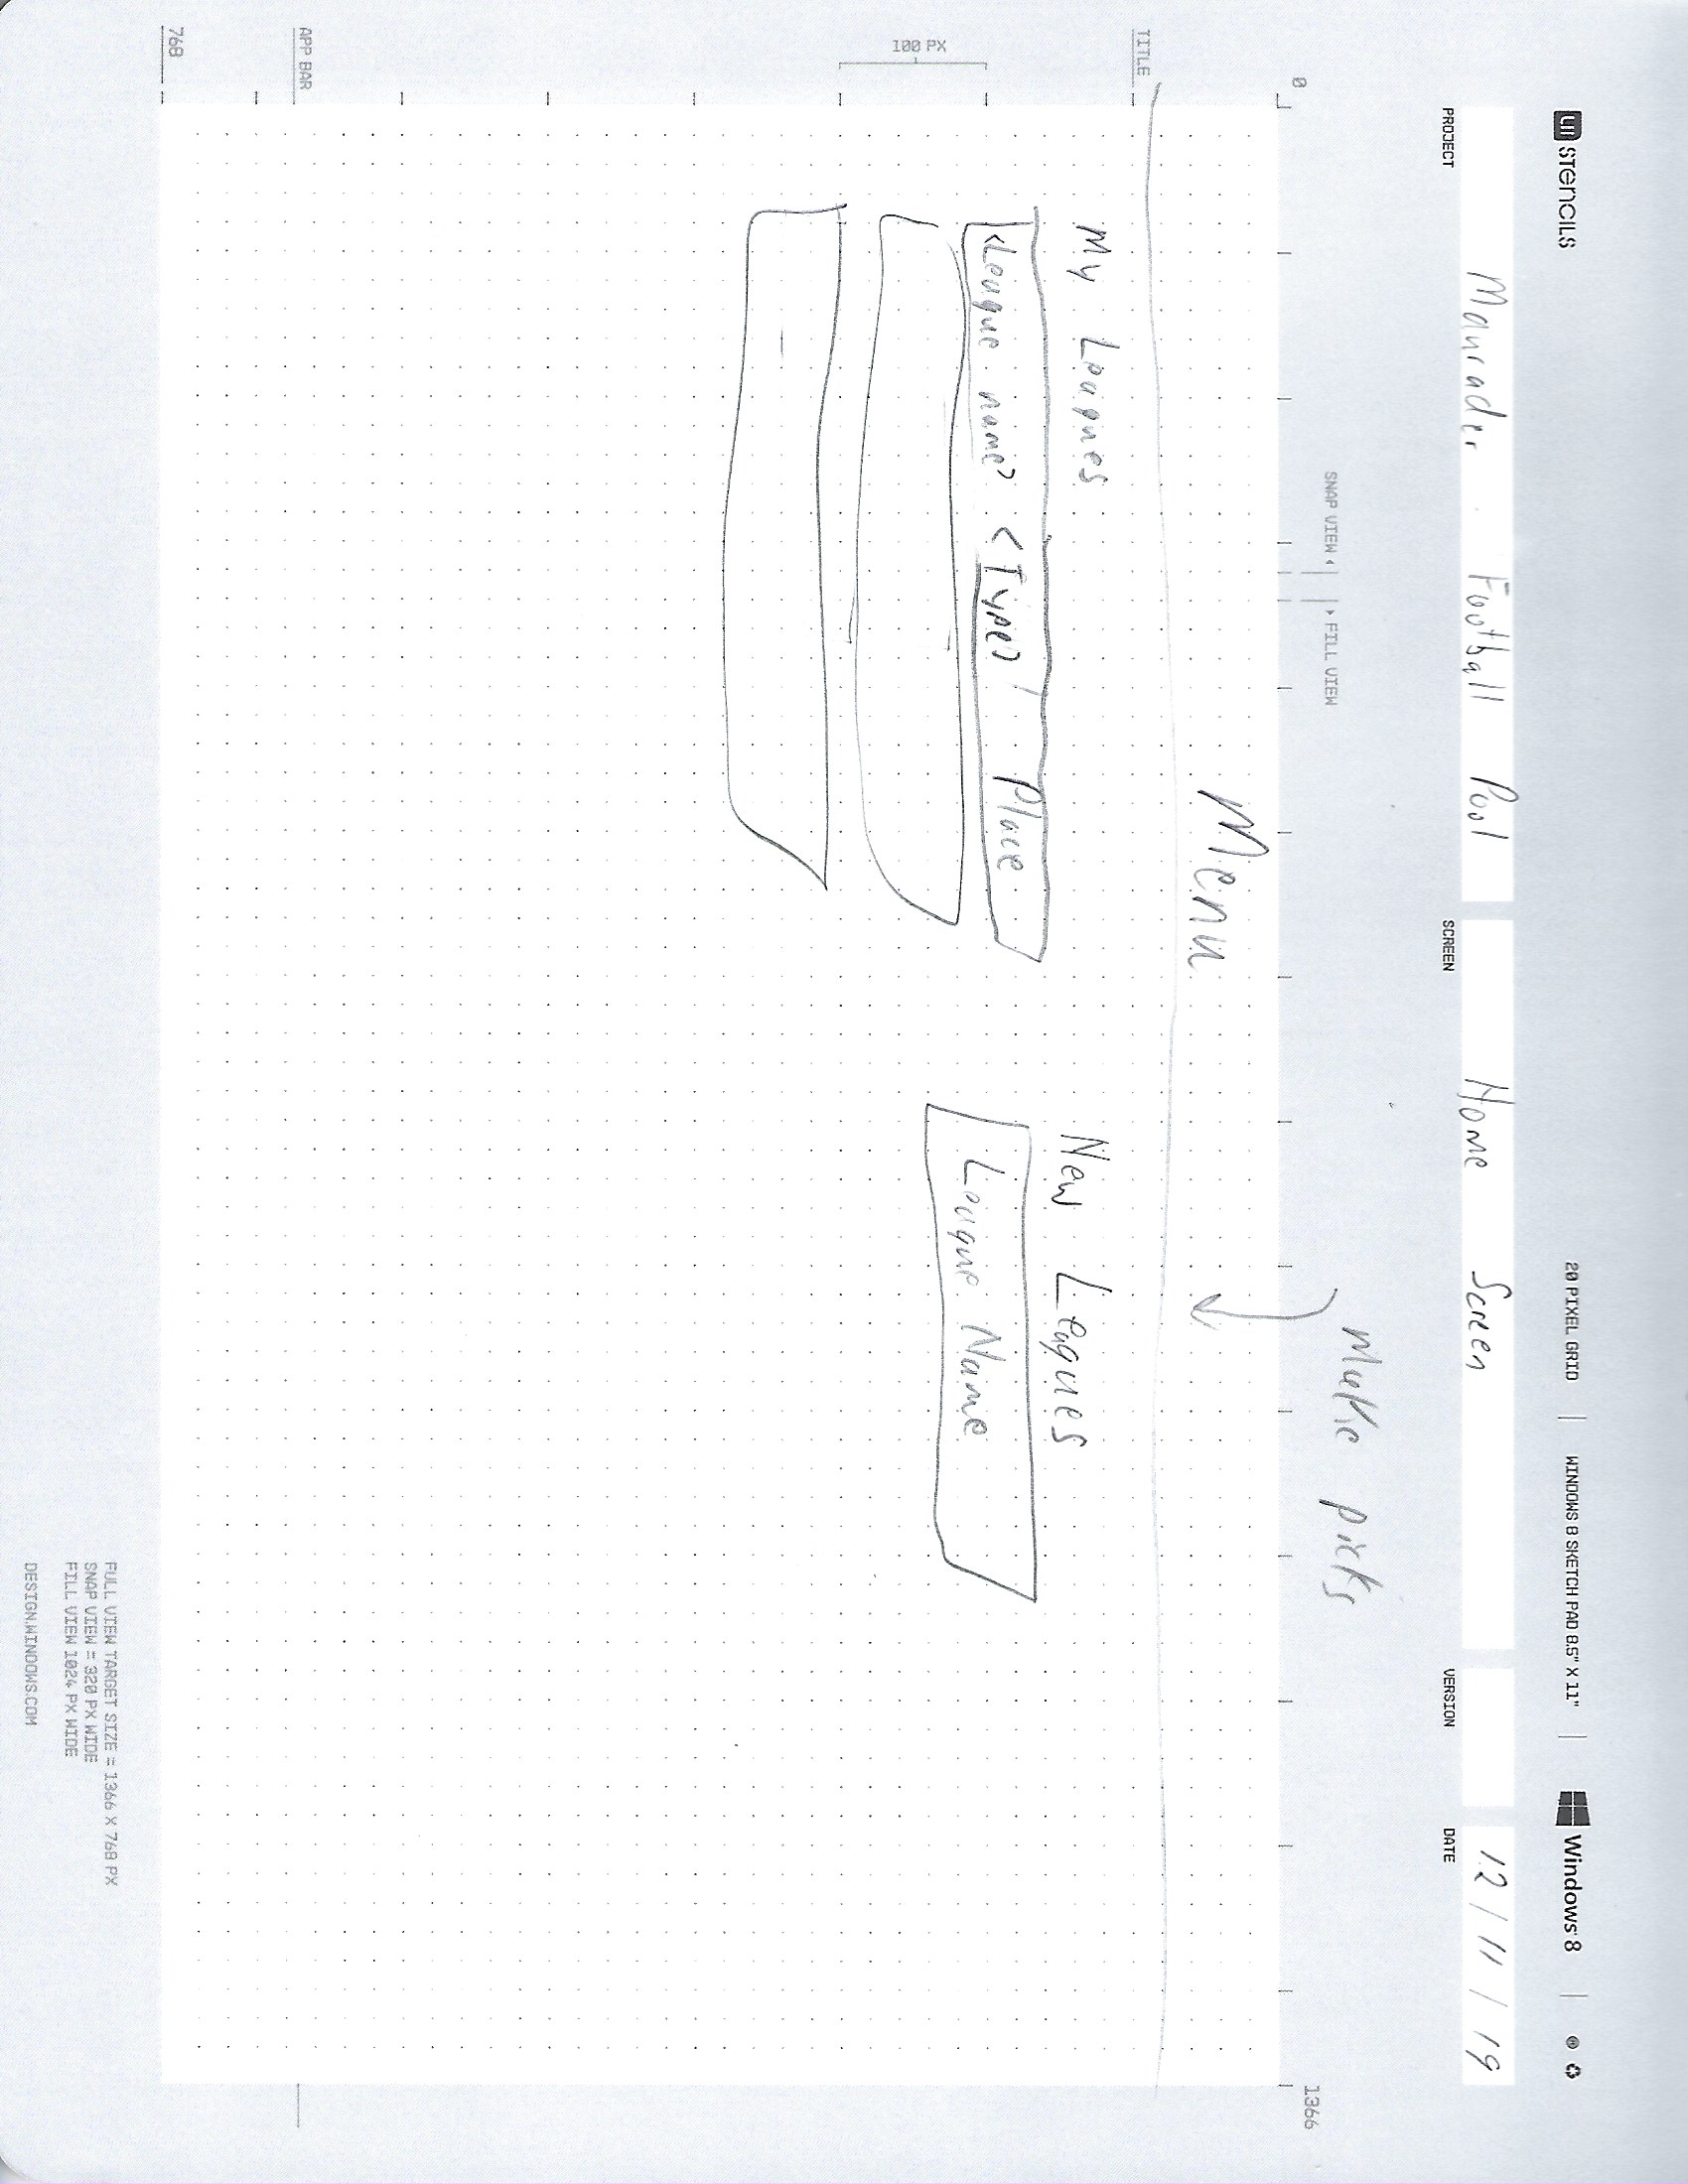 UI STENCILS
20 PIXEL GRID | WINDOWS 8 SKETCH PAD 8.5" X 11" | Windows 8
Maurader Football Pool Home Screen 12/11/19
PROJECT SCREEN VERSION DATE
Make picks
SNAP VIEW FILL VIEW
0 1366
Menu
TITLE
My Leagues New Leagues
<League name> <Type> Place
League Name
100 PX
APP BAR
768
FULL VIEW TARGET SIZE = 1366 X 768 PX
SNAP VIEW = 320 PX WIDE
FILL VIEW 1024 PX WIDE
DESIGN.WINDOWS.COM